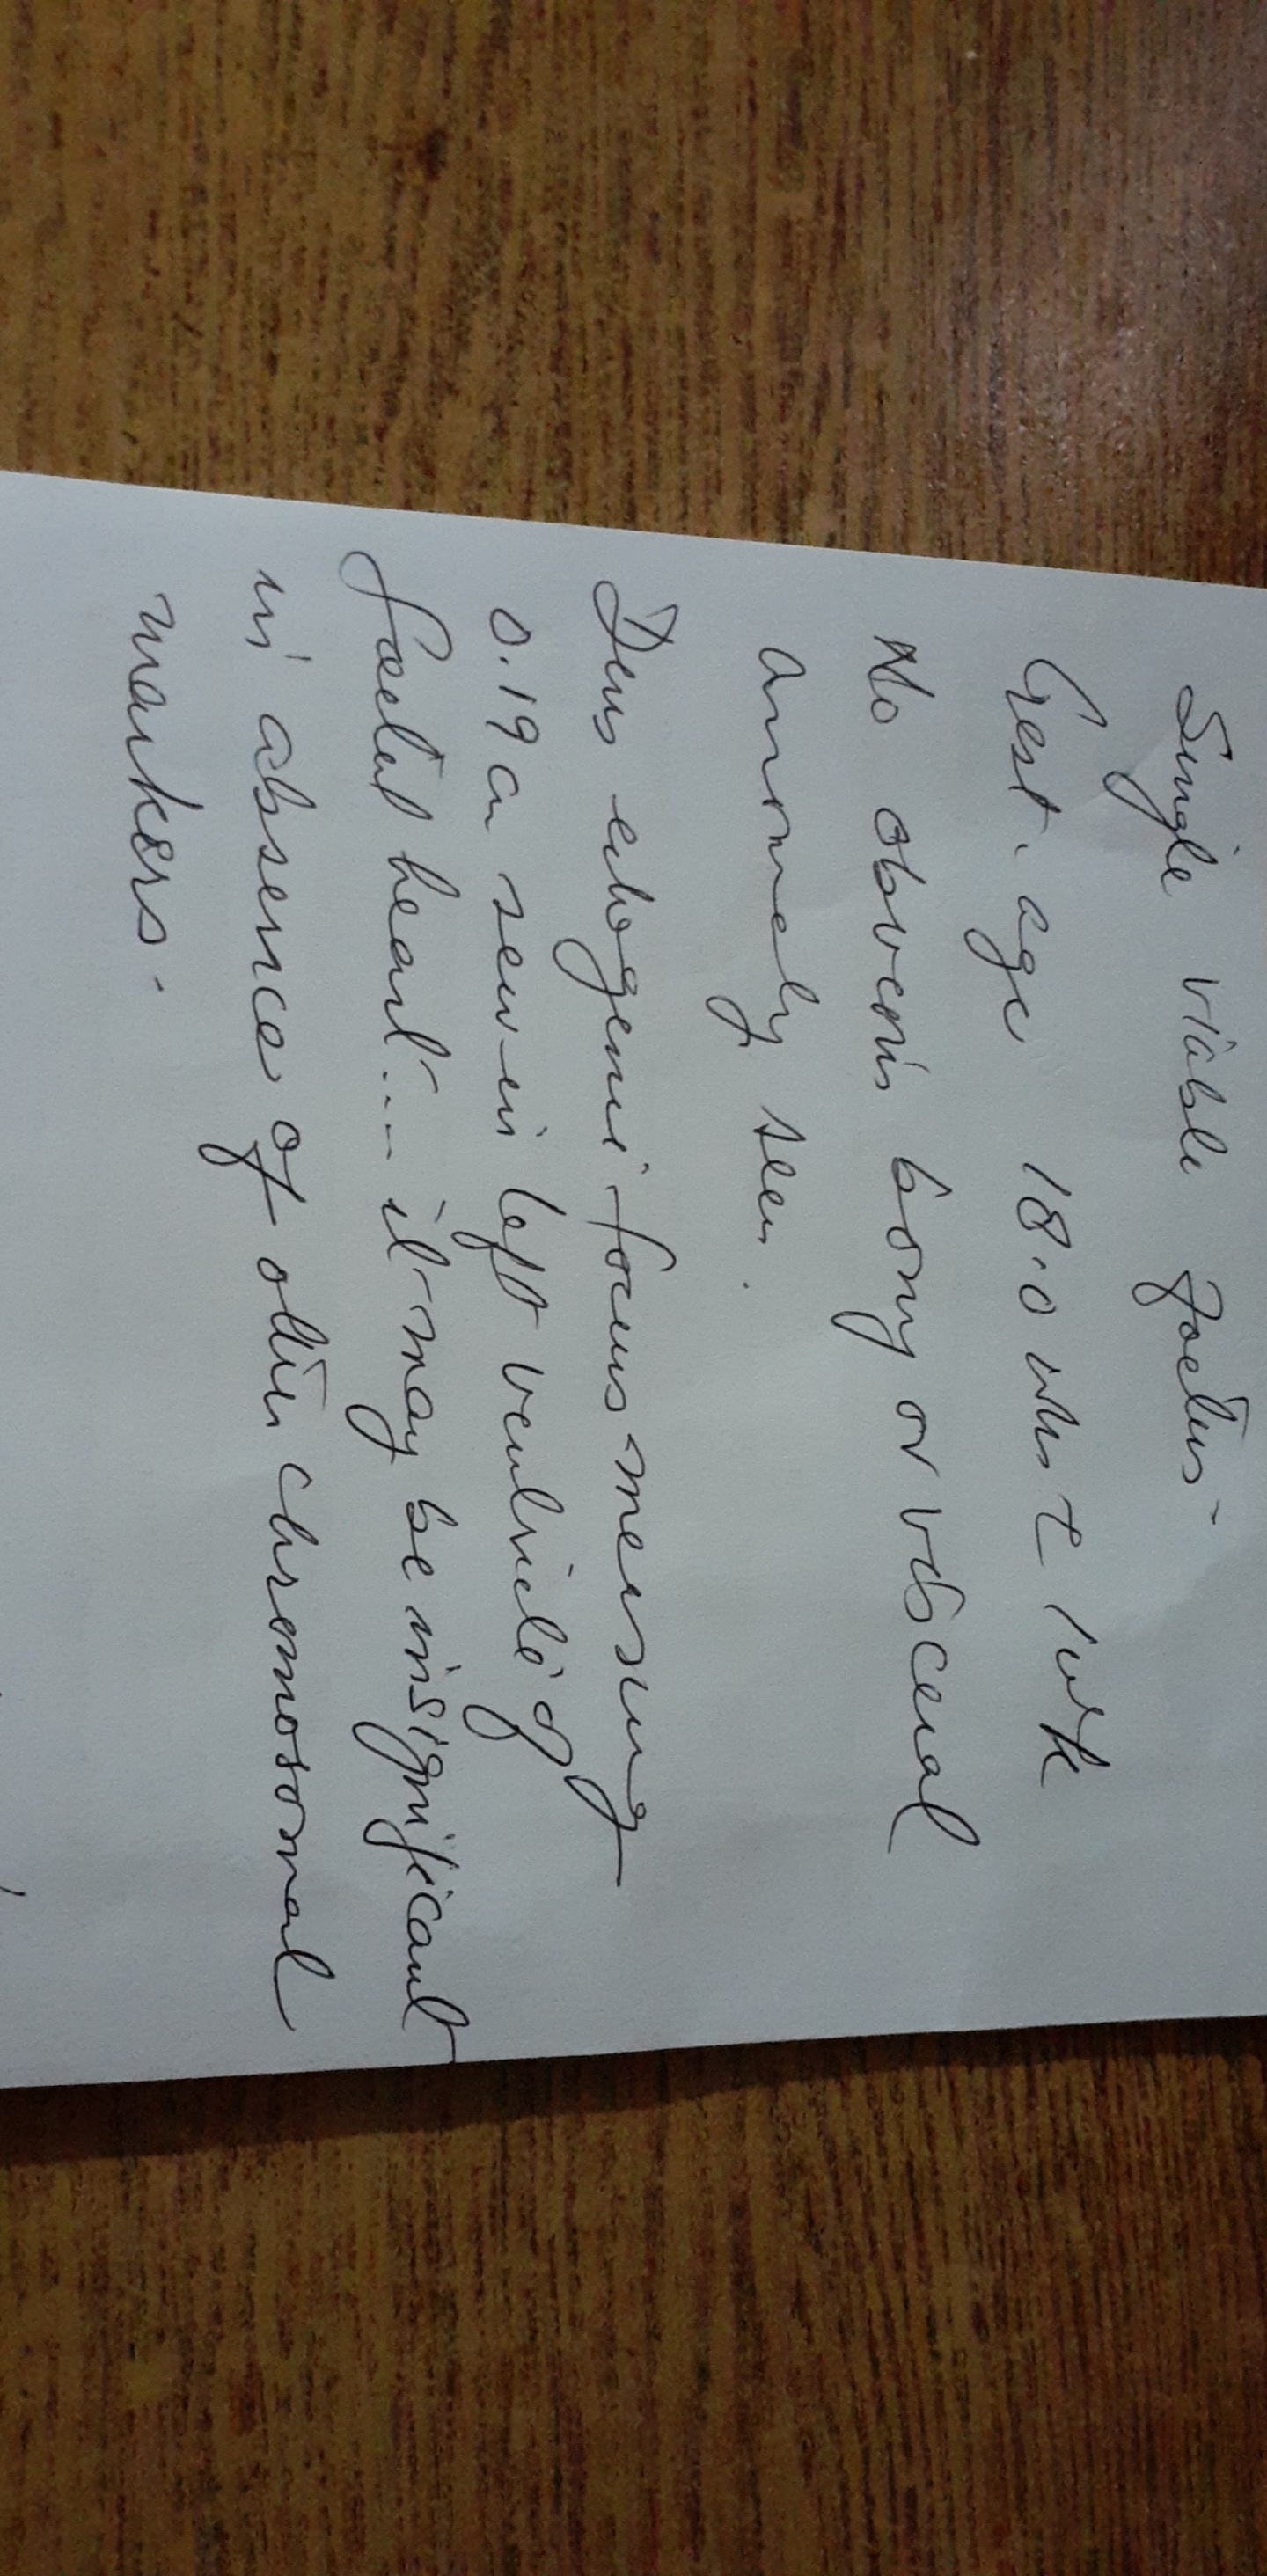 Single viable foetus-
Gest. age 18.0 wks ± 1 wk
No obvious bony or visceral
anomaly seen.
Dens echogenic focus measuring
0.19 cm seen in left ventricle of
foetal heart... it may be insignificant
in absence of other chromosomal
markers.